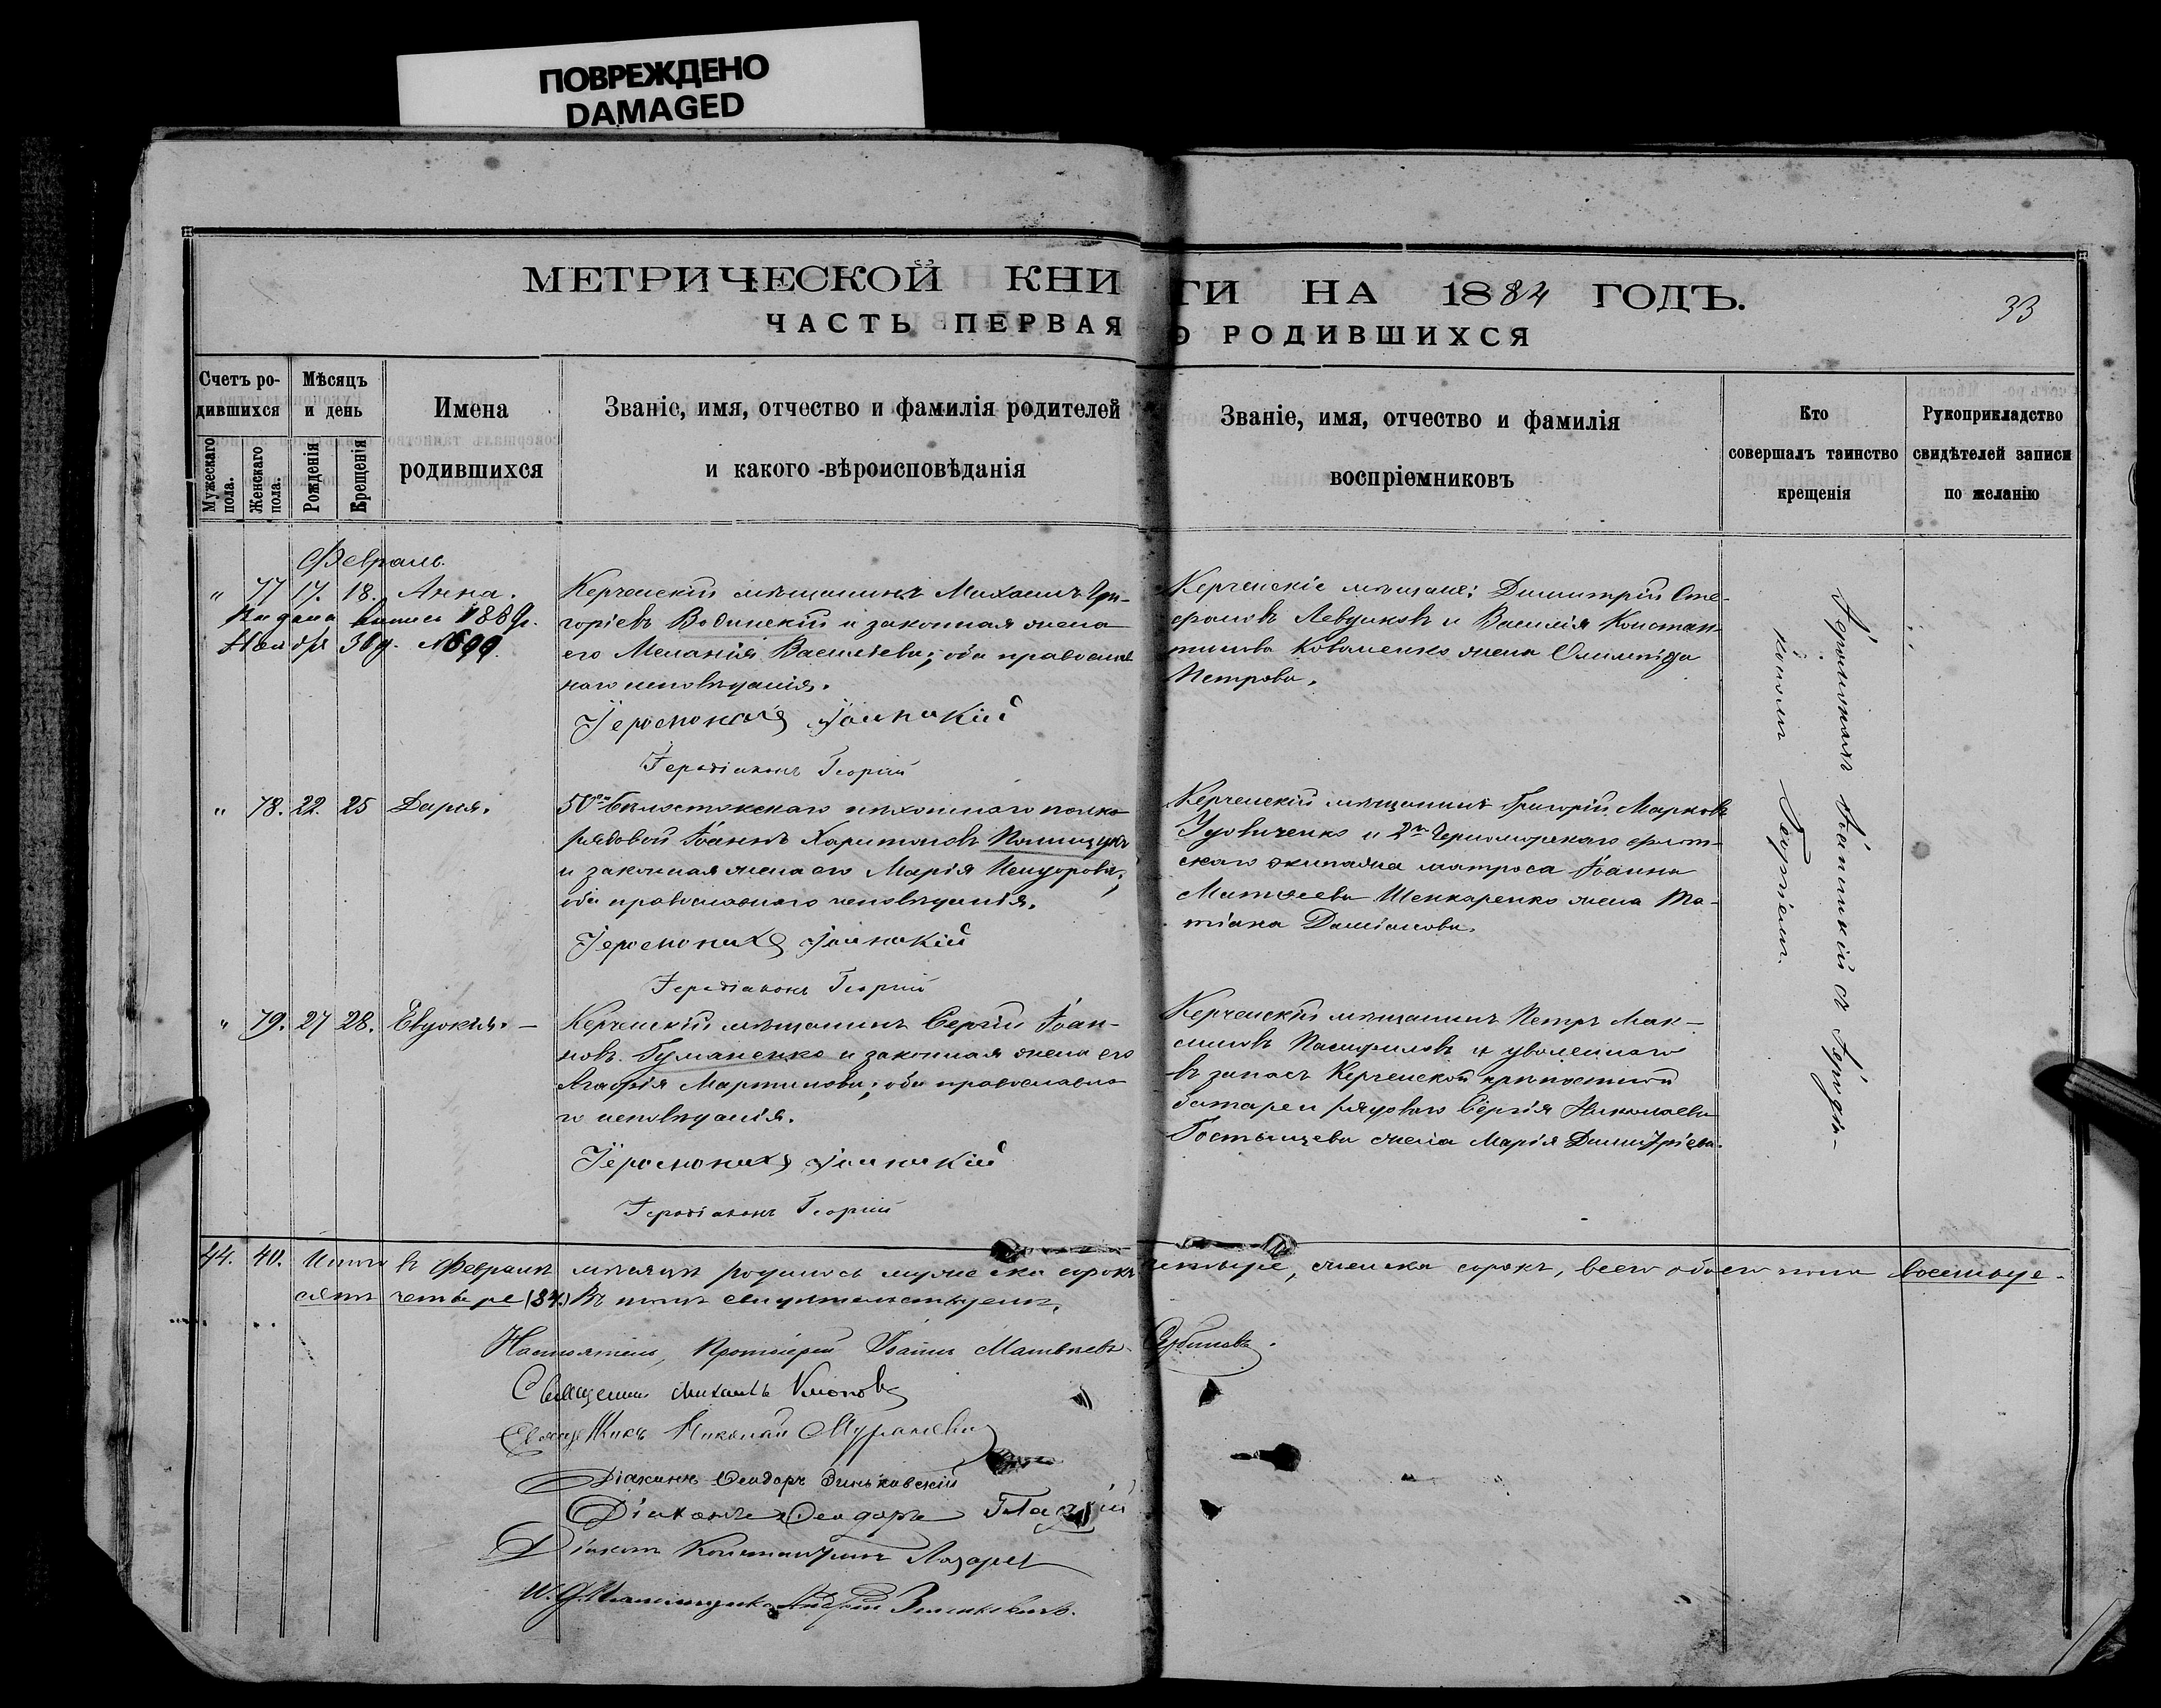 ПОВРЕЖДЕНО
DAMAGED
МЕТРИЧЕСКОЙ КНИГИ НА 1884 ГОДЪ.
33
ЧАСТЬ ПЕРВАЯ О РОДИВШИХСЯ
Счетъ ро-
дившихся
Мужескаго пола.
Женскаго пола.
Мѣсяцъ
и день
Рожденія
Крещенія
Имена
родившихся
Званіе, имя, отчество и фамилія родителей
и какого вѣроисповѣданія
Званіе, имя, отчество и фамилія
воспріемниковъ
Кто
совершалъ таинство
крещенія
Рукоприкладство
свидѣтелей записи
по желанію
Февраль.
" 77 17. 18. Анна.
1889г.
30 д. №699.
Керченскій мѣщанинъ Михаилъ Гри-
горіевъ Водинскій и законная жена
его Меланія Василіева; оба православ
наго исповѣданія.
Іеромонахъ Іоаникій
Іеродіаконъ Георгій
Керченскіе мѣщане: Димитрій Сте-
фановъ Левдиковъ и Василія Констан-
тинова Коваленко жена Олимпіда
Петрова.
" 78. 22. 25 Дарія.
50го Бѣлостокскаго пѣхотнаго полка
рядовой Іоаннъ Харитоновъ Полищукъ
и законная жена его Марія Исидорова;
оба православнаго исповѣданія.
Іеромонахъ Іоаникій
Іеродіаконъ Георгій
Керченскій мѣщанинъ Григорій Марковъ
Удовиченко и 2го Черноморскаго флот-
скаго экипажа матроса Іоанна
Матѳеева Шенкаренко жена Та-
тіана Даміанова.
" 79. 27 28. Евдокія. —
Керченскій мѣщанинъ Сергій Іоан-
новъ Гуманенко и законная жена его
Агафія Мартинова; оба православна
го исповѣданія.
Іеромонахъ Іоаникій
Іеродіаконъ Георгій
Керченскій мѣщанинъ Петръ Мак-
симовъ Панфиловъ и уволеннаго
въ запасъ Керченской крѣпостной
батареи рядоваго Сергія Николаева
Гостищева жена Марія Димитріева.
Іеромонахъ Іоанникій съ Іероді-
кономъ Георгіемъ.
44. 40. Итого въ Февралѣ мѣсяцѣ родилось мужеска сорокъ четыре, женска сорокъ, всего обоего пола восемьде-
сятъ четыре (84.) Въ томъ свидѣтельствуемъ.
Настоятель, Протоіерей Іоаннъ Матвѣевъ Сербиновъ.
Священникъ Михаилъ
Священникъ Николай Мураневичъ
Діаконъ Ѳеодоръ Зиньковскій
Діаконъ Ѳеодоръ
Діаконъ Константинъ Лазарев
И. д. Псаломщика Андрей Зиньковичъ.